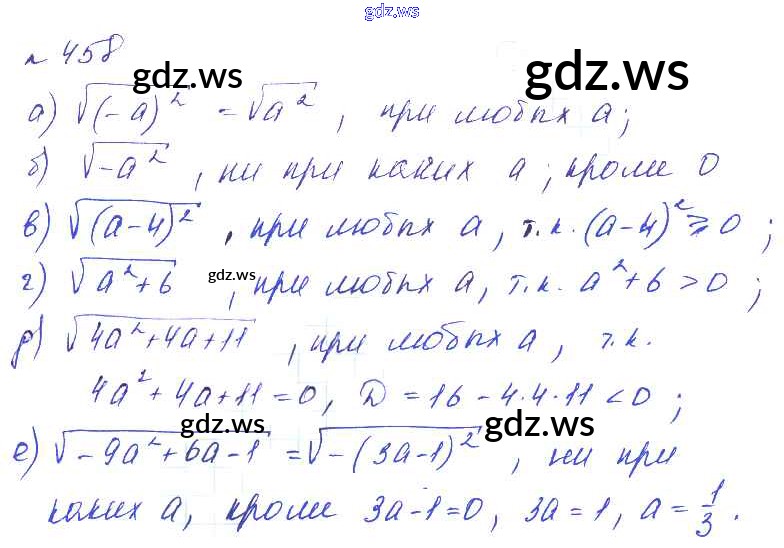 gdz.ws
№ 458
gdz.ws gdz.ws
а) √(-а)² = √а², при любых а;
б) √-а², ни при каких а; кроме 0
в) √(а-4)², при любых а, т.к. (а-4)² ⩾ 0;
г) √а²+6 gdz.ws, при любых а, т.к. а²+6 > 0;
д) √4а²+4а+11, при любых а, т.к.
4а²+4а+11=0, D=16-4·4·11<0;
gdz.ws gdz.ws
е) √-9а²+6а-1 = √-(3а-1)², ни при
каких а, кроме 3а-1=0, 3а=1, а=1/3.